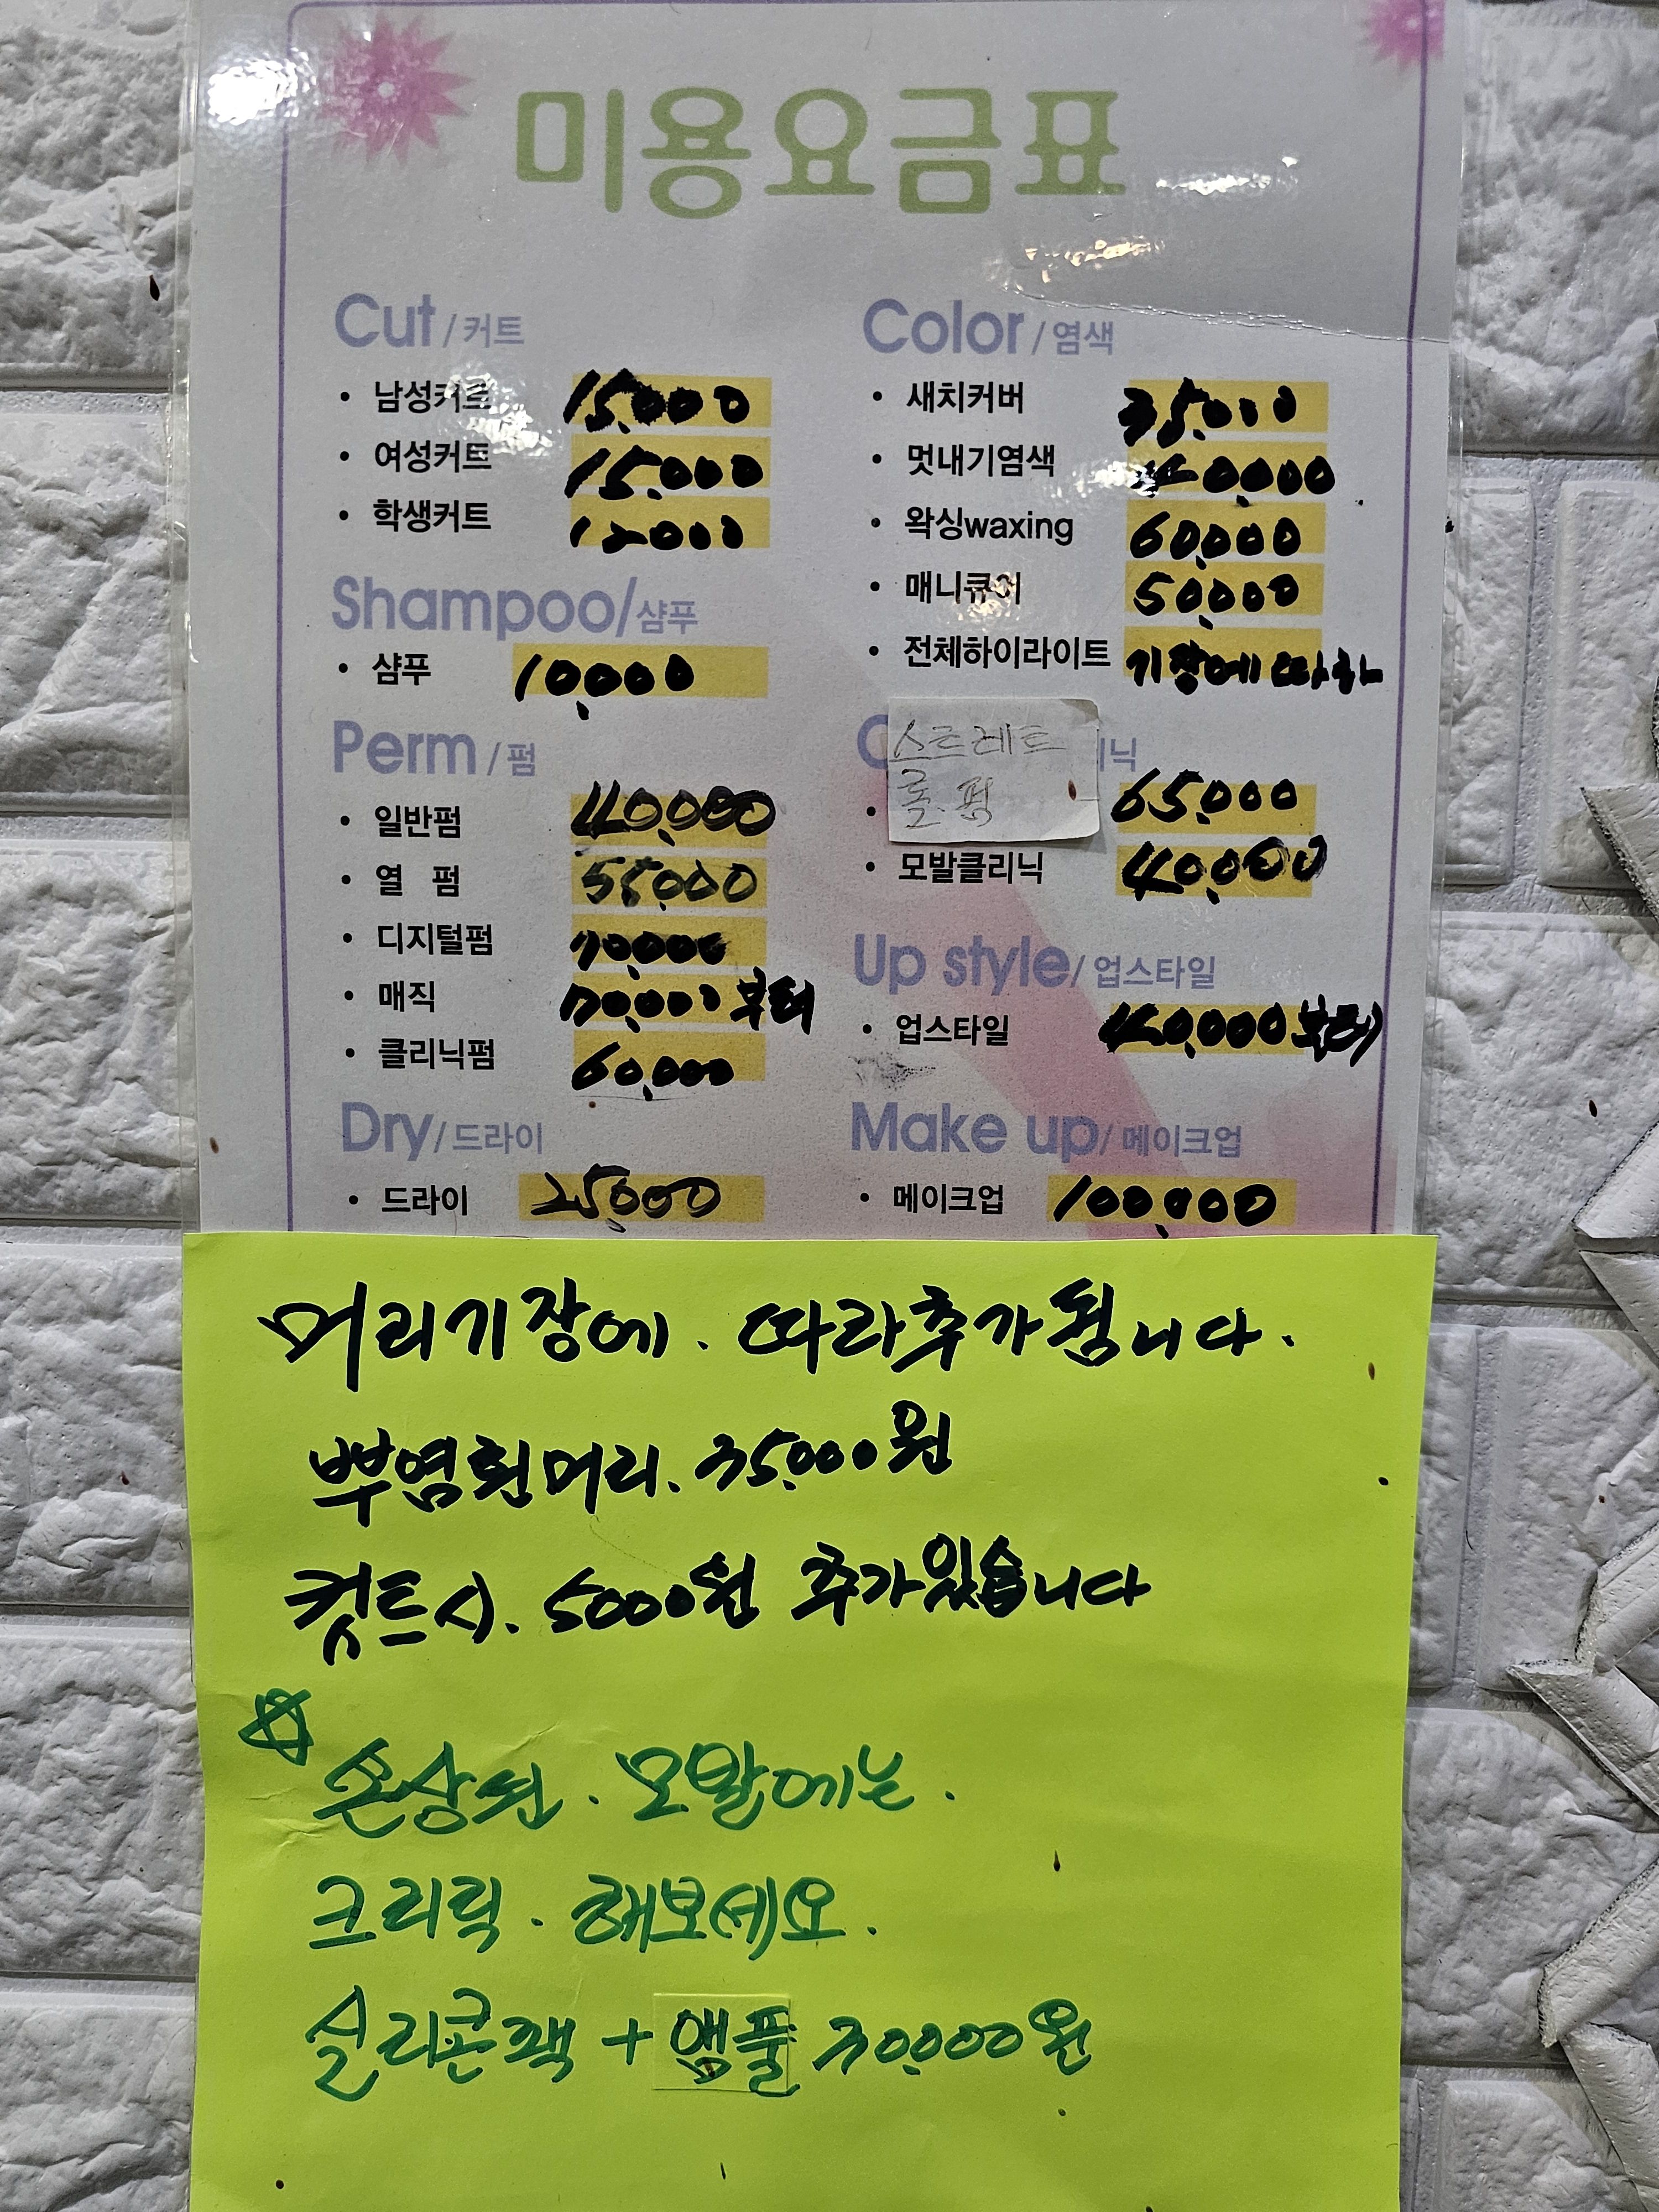 미용요금표
Cut / 커트
• 남성커트 15,000
• 여성커트 15,000
• 학생커트 12000
Shampoo/샴푸
• 샴푸 10,000
Perm / 펌
• 일반펌 40,000
• 열 펌 55,000
• 디지털펌 70,000
• 매직 70,000 부터
• 클리닉펌 60,000
Dry/드라이
• 드라이 25,000
Color / 염색
• 새치커버 35,000
• 멋내기염색 40,000
• 왁싱waxing 60,000
• 매니큐어 50,000
• 전체하이라이트 기장에 따라
스트레트
롤.펌 65,000
• 모발클리닉 40,000
Up style/ 업스타일
• 업스타일 40,000부터
Make up/ 메이크업
• 메이크업 100,000
머리기장에. 따라추가됩니다.
뿌염흰머리. 35,000원
컷트시. 5000원 추가있습니다
☆ 손상된. 모발에는.
크리닉. 해보세요.
실리콘팩 + 앰플 30,000원